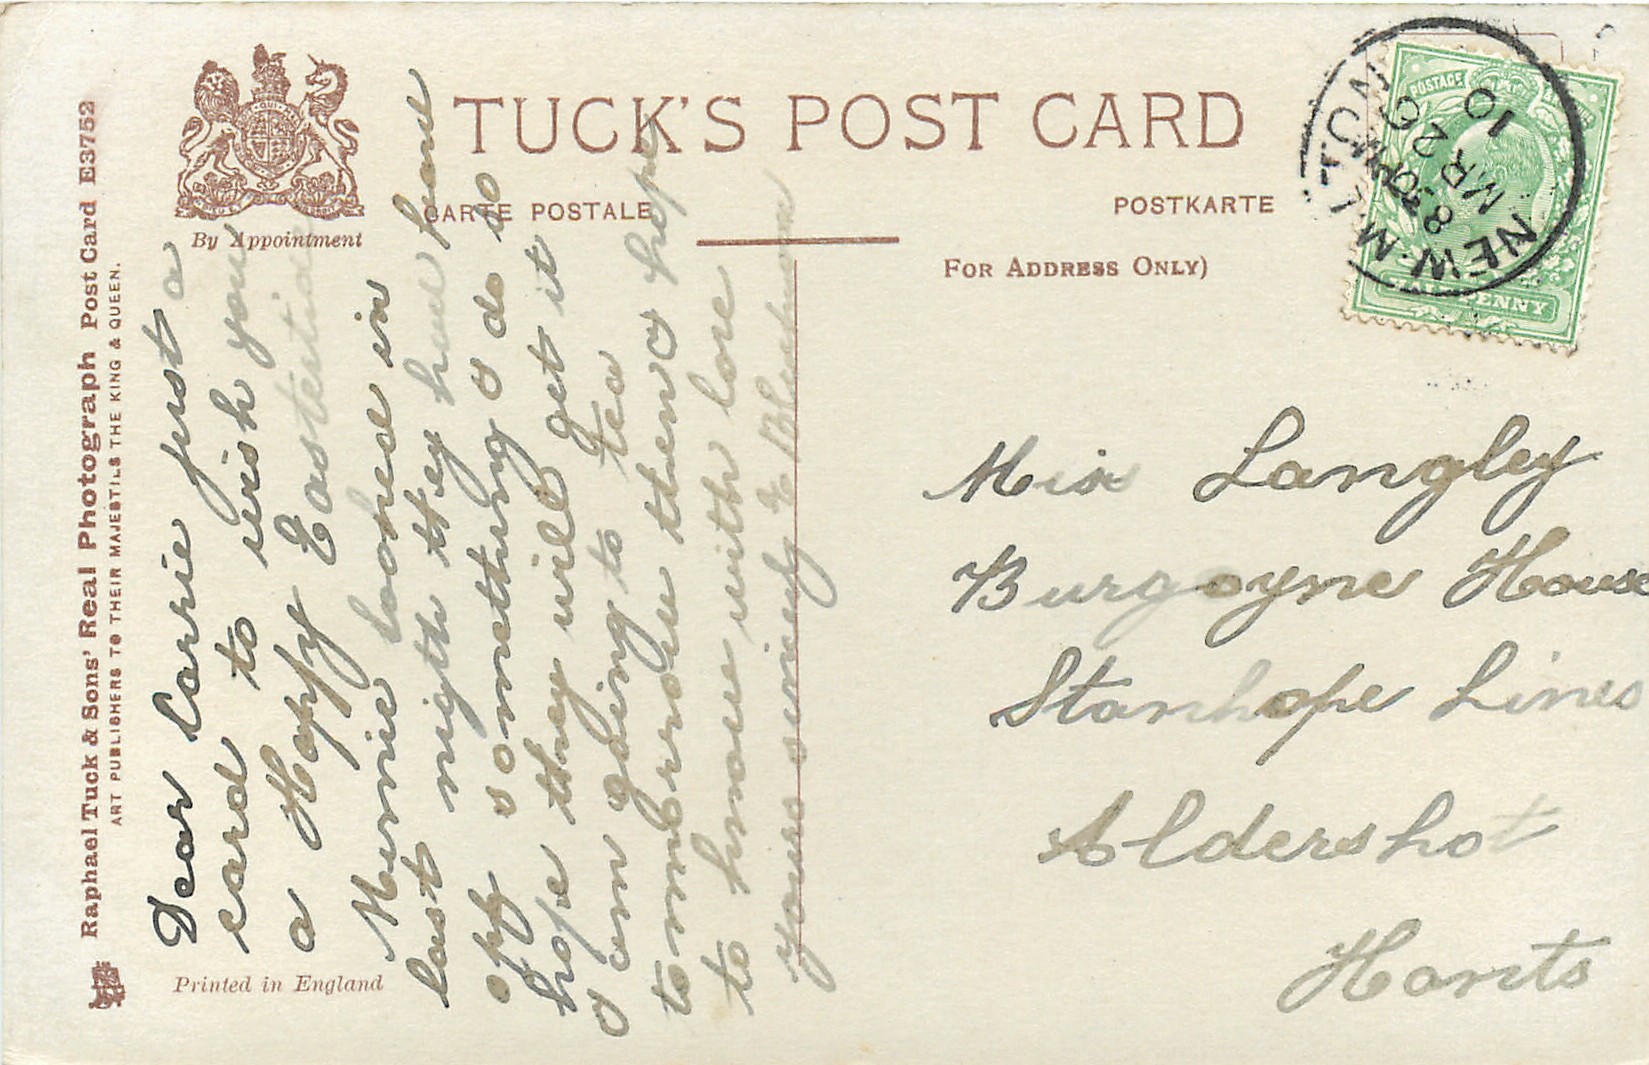 Raphael Tuck & Sons' Real Photograph Post Card E3752
ART PUBLISHERS TO THEIR MAJESTIES THE KING & QUEEN.
By Appointment
TUCK'S POST CARD
CARTE POSTALE
POSTKARTE
FOR ADDRESS ONLY)
Printed in England
POSTAGE
PENNY
NEW MILTON
830PM
MR 20
10
Dear Carrie just a
card to wish you
a Happy Eastertide
Minnie looked in
last night they had have
off something I do so
hope they will get it
I am going to tea
tommorow then I hope
to house with love
yours sincerely E
Miss Langley
Burgoyne House
Stanhope Lines
Aldershot
Hants